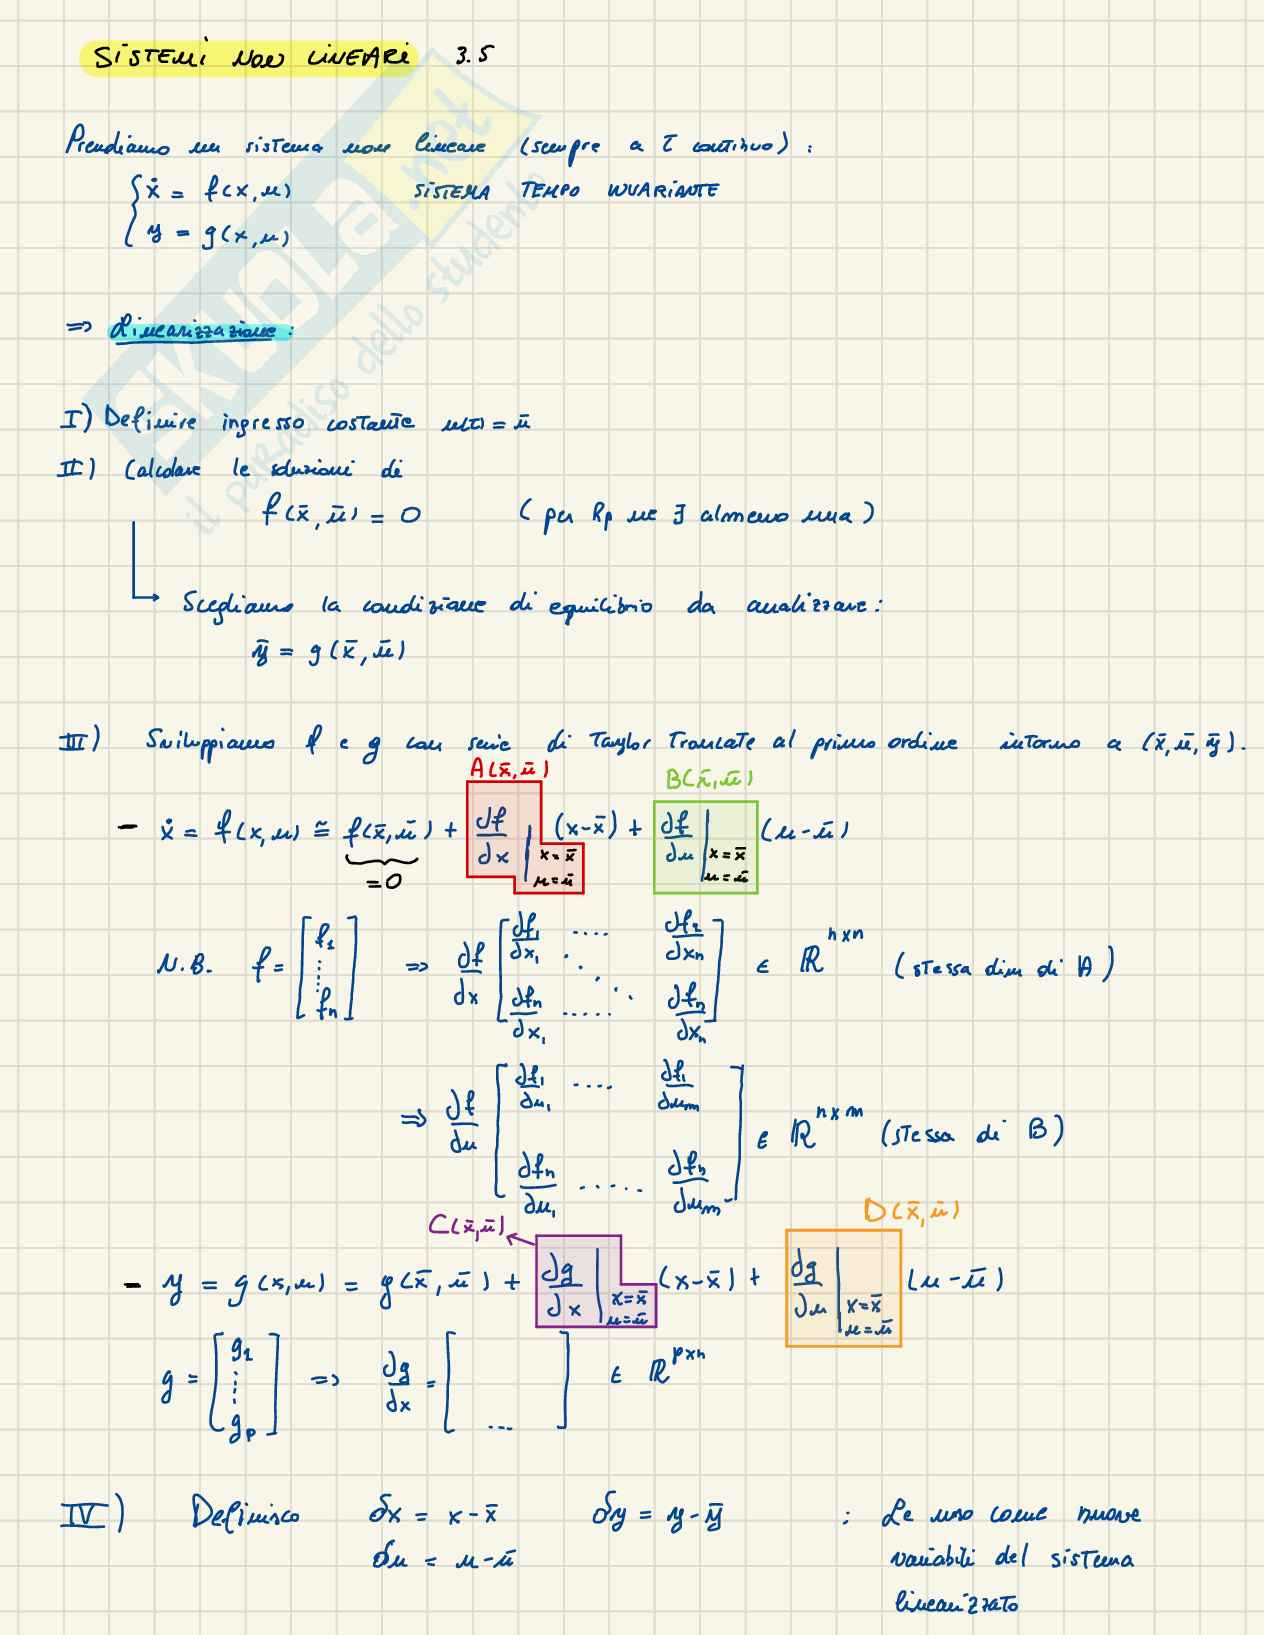 SISTEMI NON LINEARI 3.5
Prendiamo un sistema non lineare (sempre a t continuo) :
ẋ = f(x,u) SISTEMA TEMPO INVARIANTE
y = g(x,u)
⇒ Linearizzazione :
I) Definire ingresso costante u(t) = ū
II) Calcolare le soluzioni di
f(x̄, ū) = 0 ( per Hp ne ∃ almeno una )
Scegliamo la condizione di equilibrio da analizzare :
ȳ = g(x̄, ū)
III) Sviluppiamo f e g con serie di Taylor troncate al primo ordine intorno a (x̄, ū, ȳ).
A(x̄,ū) B(x̄,ū)
- ẋ = f(x,u) ≅ f(x̄,ū) + ∂f/∂x | x=x̄ u=ū (x-x̄) + ∂f/∂u | x=x̄ u=ū (u-ū)
=0
N.B. f = [f1 ⋮ fn] ⇒ ∂f/∂x [∂f1/∂x1 .... ∂f1/∂xn ⋱ ∂fn/∂x1 ..... ∂fn/∂xn] ∈ ℝ^n×n (stessa dim di A)
⇒ ∂f/∂u [∂f1/∂u1 .... ∂f1/∂um ∂fn/∂u1 ...... ∂fn/∂um] ∈ ℝ^n×m (stessa di B)
C(x̄,ū) D(x̄,ū)
- y = g(x,u) = g(x̄,ū) + ∂g/∂x | x=x̄ u=ū (x-x̄) + ∂g/∂u | x=x̄ u=ū (u-ū)
g = [g1 ⋮ gp] ⇒ ∂g/∂x = [ ... ] ∈ ℝ^p×n
IV) Definisco δx = x-x̄ δy = y-ȳ : Le uso come nuove
δu = u-ū variabili del sistema
linearizzato
SKUOLA.net
il paradiso dello studente